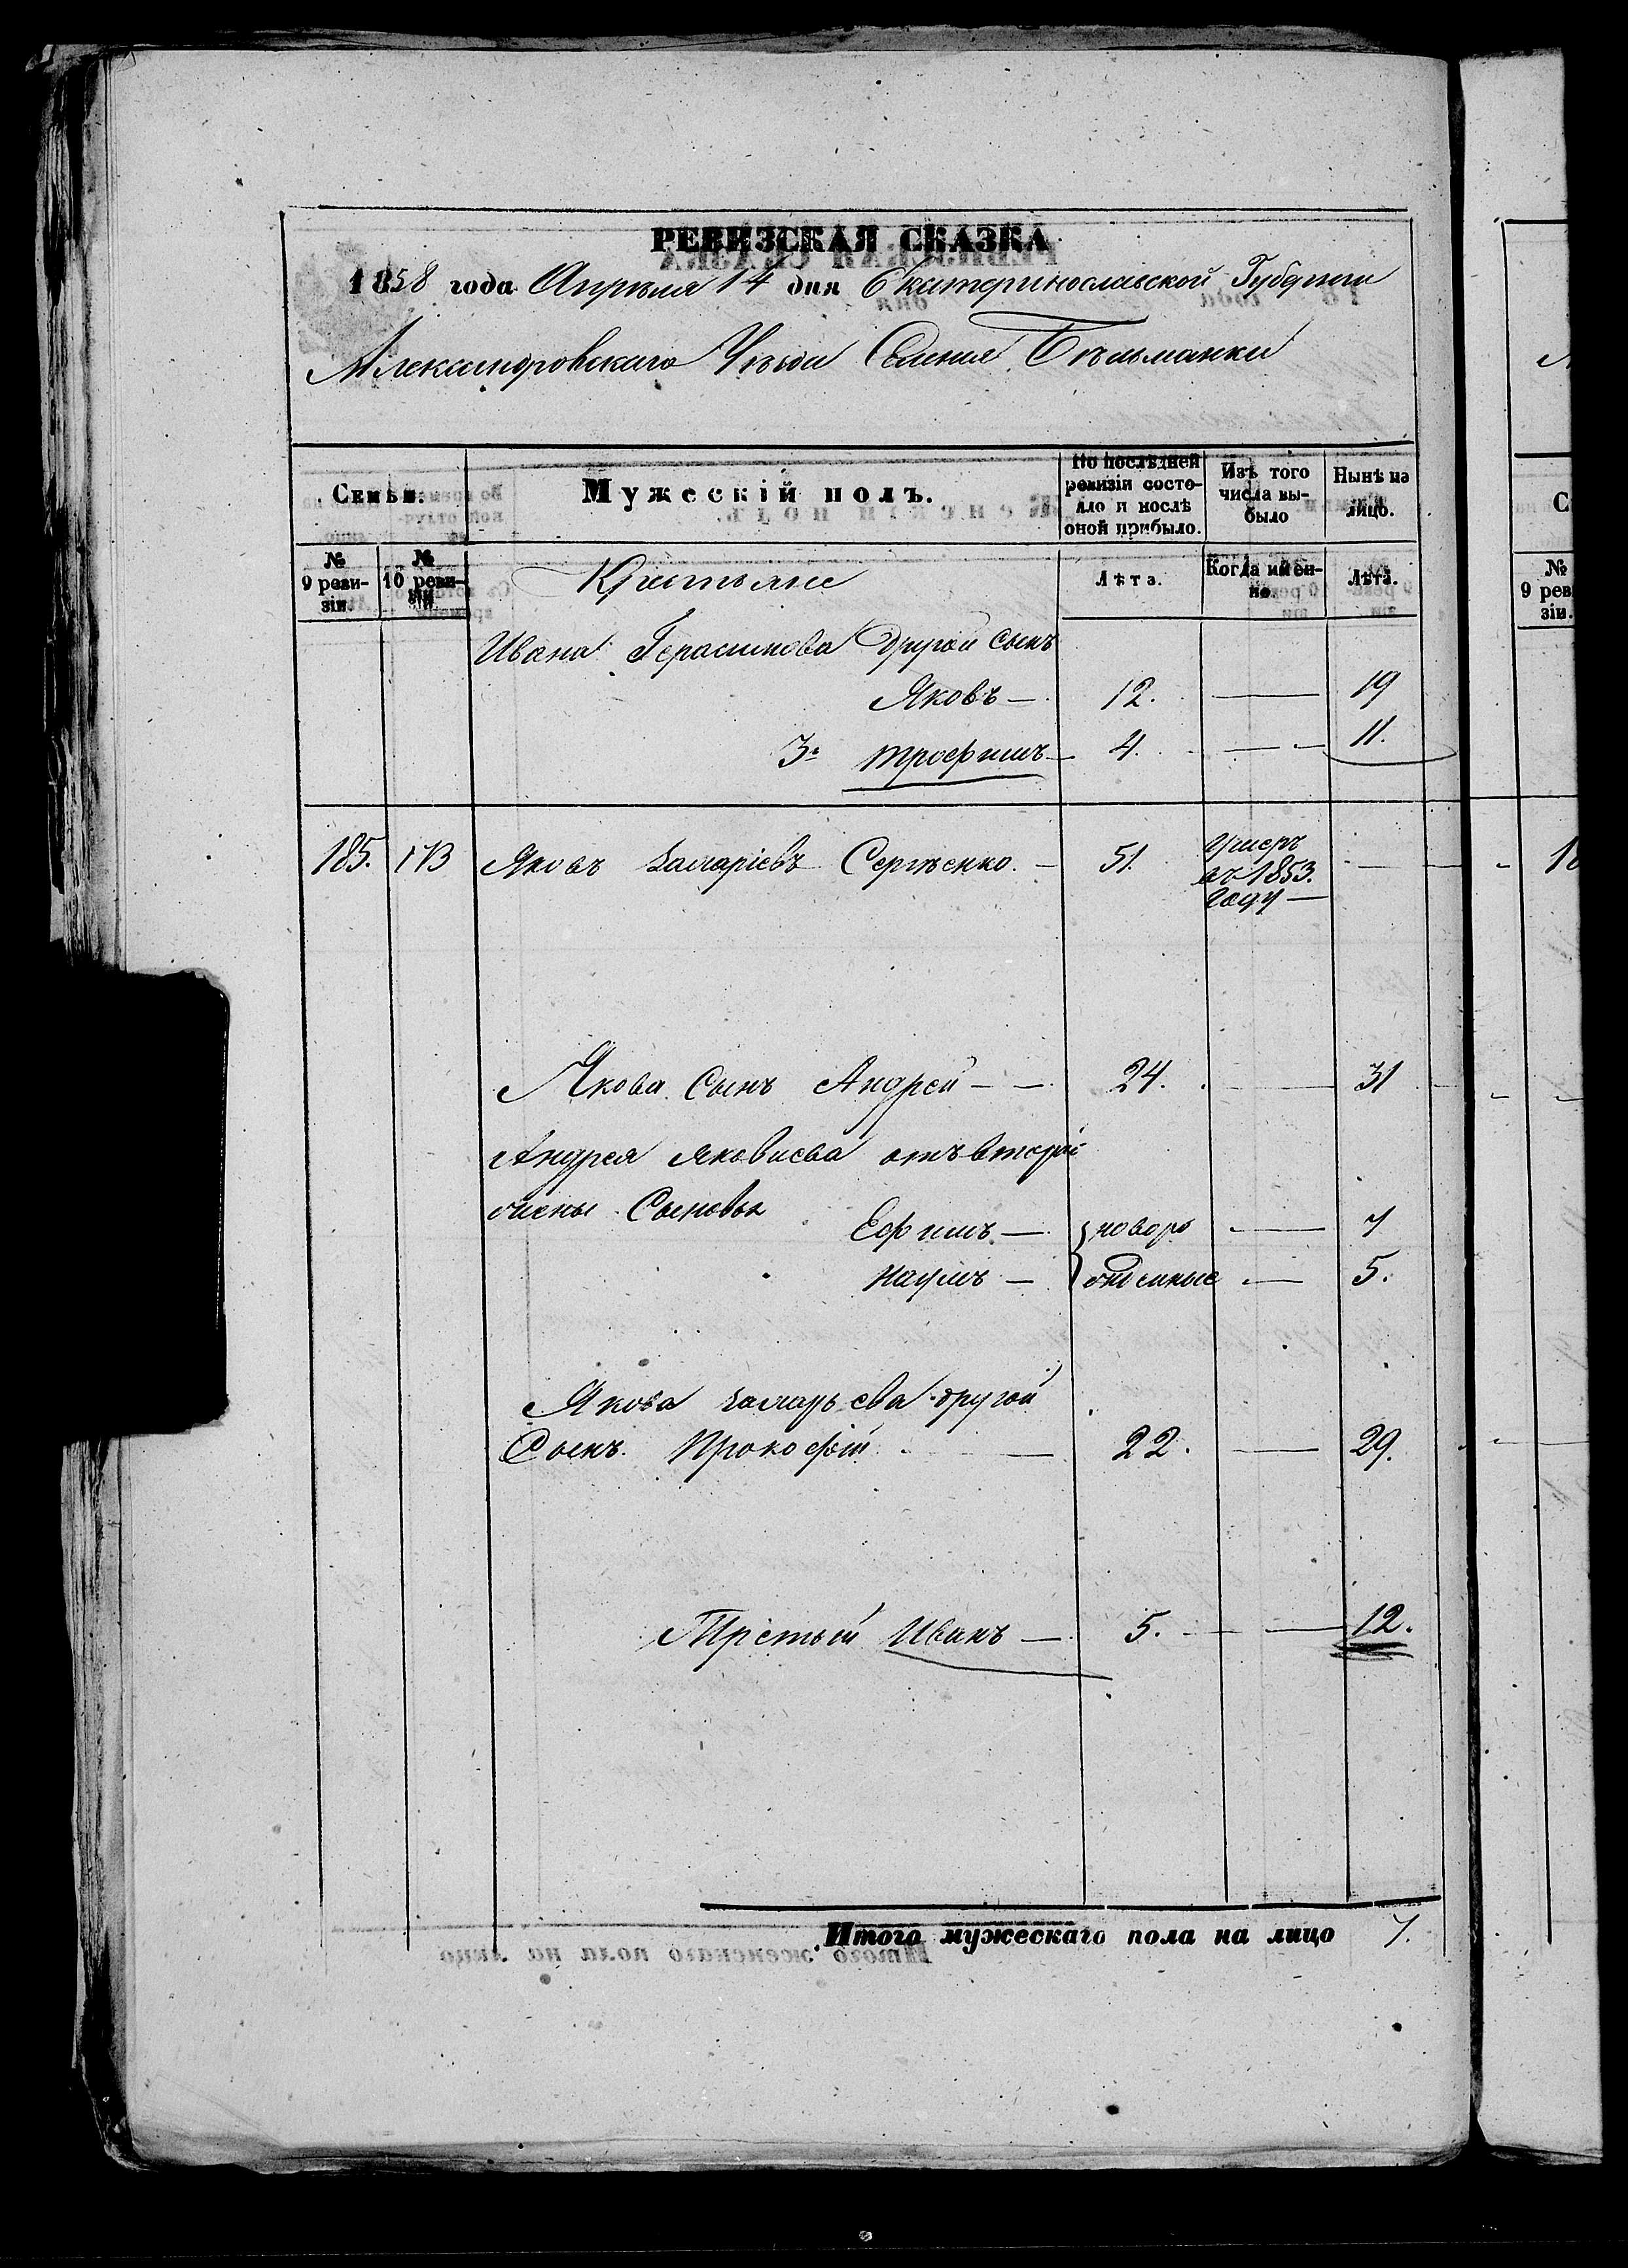 РЕВИЗСКАЯ СКАЗКА
1858 года Апреля 14 дня Екатеринославской Губернии
Александровского Уѣзда Селения Бѣльманки
Семьи.
Мужескій полъ.
По послѣдней ревизіи состояло и послѣ оной прибыло.
Изъ того числа выбыло
Нынѣ на лицо.
№ 9 ревизіи.
№ 10 ревизіи
Крестьяне
Лѣта.
Когда именно.
Лѣта.
Ивана Герасимова другой сынъ
Яковъ — 12. — 19
3й Трофимъ — 4. — 11.
185. 173 Яковъ Захаріевъ Сергѣенко. — 51. умеръ въ 1853. году — —
Якова Сынъ Андрей — — 24. — 31
Андрея Яковлева отъ второй
жены Сыновья
Ефимъ — новоро — 7
Наумъ — жденные — 5.
Якова Захарьева другой
Сынъ Прокофій — 22. — 29.
Третий Иванъ — 5. — 12.
Итого мужескаго пола на лицо 7.